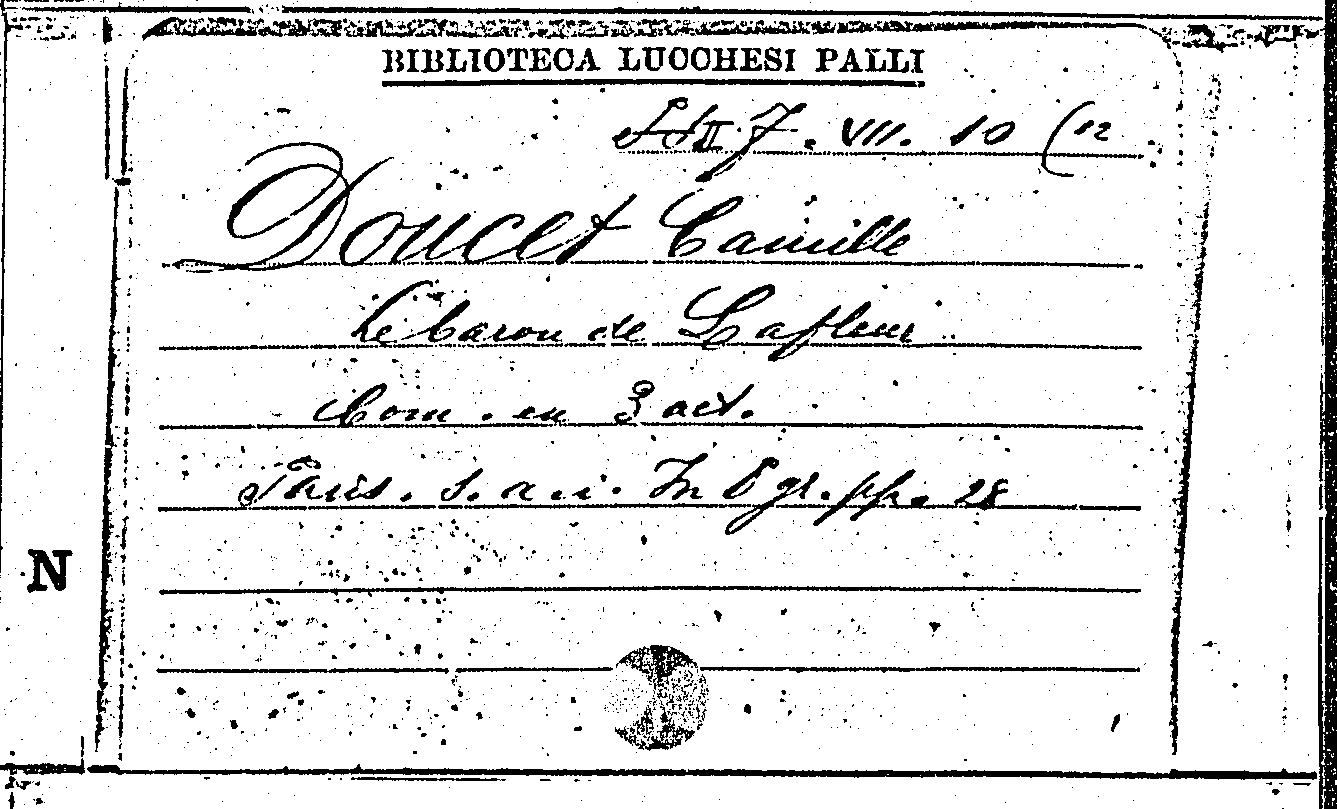 BIBLIOTECA LUCCHESI PALLI
II 7. VII. 10 (12
Doucet Camille
Le baron de Lafleur
Com. en 3 act.
Paris. s. a. i. In 8 gr. pp. 28
N